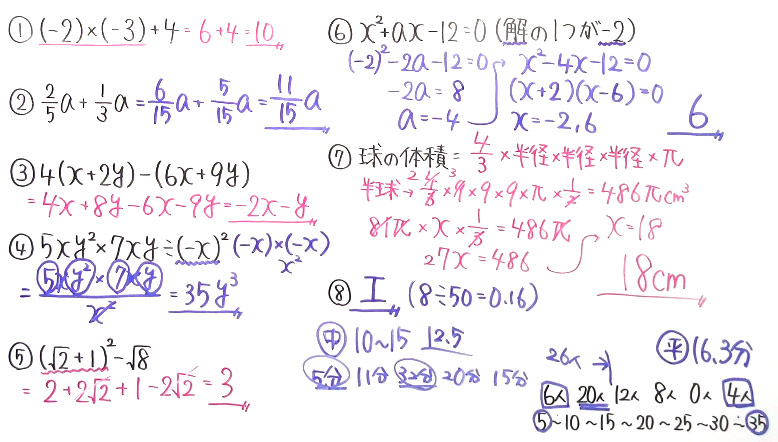 ① (-2)×(-3)+4=6+4=10
② 2/5a+1/3a=6/15a+5/15a=11/15a
③ 4(x+2y)-(6x+9y)
=4x+8y-6x-9y=-2x-y
④ 5xy²×7xy÷(-x)² (-x)×(-x)
x²
=5xy²×7xy/x²=35y³
⑤ (√2+1)²-√8
=2+2√2+1-2√2=3
⑥ x²+ax-12=0 (解の1つが-2)
(-2)²-2a-12=0 x²-4x-12=0
-2a=8 (x+2)(x-6)=0
a=-4 x=-2,6 6
⑦ 球の体積=4/3×半径×半径×半径×π
半球→4/3×9×9×9×π×1/2=486πcm³
81π×x×1/3=486π x=18
27x=486
18cm
⑧ エ (8÷50=0.16)
中 10~15 12.5
5分 11分 32分 20分 15分
26人 平 16.3分
6人 20人 12人 8人 0人 4人
5~10~15~20~25~30~35